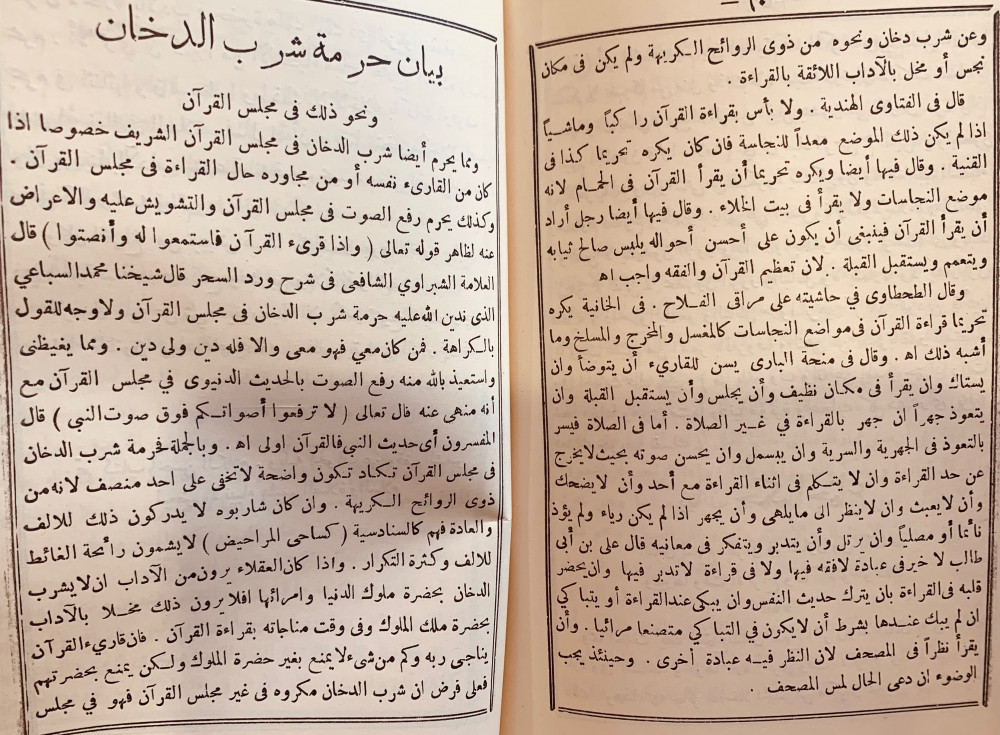 ٢٠ —
وعن شرب دخان ونحوه من ذوى الروائح الكريهة ولم يكن فى مكان
نجس أو مخل بالآداب اللائقة بالقراءة .
قال فى الفتاوى الهندية . ولا بأس بقراءة القرآن را كباً وماشياً
اذا لم يكن ذلك الموضع معداً للنجاسة فان كان يكره تحريما كذا فى
القنية . وقال فيها أيضا ويكره تحريما أن يقرأ القرآن فى الحمام لانه
موضع النجاسات ولا يقرأ فى بيت الخلاء . وقال فيها أيضا رجل أراد
أن يقرأ القرآن فينبغى أن يكون على أحسن أحواله يلبس صالح ثيابه
ويتعمم ويستقبل القبلة . لان تعظيم القرآن والفقه واجب اه
وقال الطحطاوى فى حاشيته على مراقى الفلاح . فى الخانية يكره
تحريما قراءة القرآن فى مواضع النجاسات كالمغسل والمخرج والمسلخ وما
أشبه ذلك اه . وقال فى منحة البارى يسن للقارىء أن يتوضأ وان
يستاك وان يقرأ فى مكان نظيف وأن يجلس وأن يستقبل القبلة وان
يتعوذ جهراً ان جهر بالقراءة فى غير الصلاة . أما فى الصلاة فيسر
بالتعوذ فى الجهرية والسرية وان يبسمل وان يحسن صوته بحيث لايخرج
عن حد القراءة وان لا يتكلم فى اثناء القراءة مع أحد وأن لايضحك
وأن لايعبث وان لاينظر الى مايلهى وأن يجهر اذا لم يكن رياء ولم يؤذ
نائما أو مصلياً وان يرتل وأن يتدبر ويتفكر فى معانيه قال على بن أبى
طالب لا خيرفى عبادة لافقه فيها ولا فى قراءة لاتدبر فيها وان يحضر
قلبه فى القراءة بان يترك حديث النفس وان يبكى عندالقراءة أو يتبا كي
ان لم يبك عندها بشرط أن لايكون فى التبا كي متصنعا مرائيا . وأن
يقرأ نظراً فى المصحف لان النظر فيه عبادة أخرى . وحينئذ يجب
الوضوء ان دعى الحال لمس المصحف .
بيان حرمة شرب الدخان
ونحو ذلك فى مجلس القرآن
ومما يحرم أيضا شرب الدخان فى مجلس القرآن الشريف خصوصا اذا
كان من القارىء نفسه أو من مجاوره حال القراءة فى مجلس القرآن .
وكذلك يحرم رفع الصوت فى مجلس القرآن والتشويش عليه والاعراض
عنه لظاهر قوله تعالى ( واذا قرىء القرآن فاستمعوا له وأنصتوا ) قال
العلامة الشبراوي الشافعى فى شرح ورد السحر قال شيخنا محمد السباعي
الذى ندين الله عليه حرمة شرب الدخان فى مجلس القرآن ولاوجه للقول
بالكراهة . فمن كان معي فهو معى والا فله دين ولى دين . ومما يغيظنى
واستعيذ بالله منه رفع الصوت بالحديث الدنيوى في مجلس القرآن مع
أنه منهى عنه قال تعالى ( لا ترفعوا أصواتكم فوق صوت النبي ) قال
المفسرون أى حديث النبي فالقرآن اولى اه . وبالجملة فحرمة شرب الدخان
فى مجلس القرآن تكاد تكون واضحة لاتخفى على احد منصف لانه من
ذوى الروائح الكريهة . وان كان شاربوه لا يدركون ذلك للالف
والعادة فهم كالسنادسية ( كساحى المراحيض ) لايشمون رائحة الغائط
للالف وكثرة التكرار . واذا كان العقلاء يرون من الآداب ان لا يشرب
الدخان بحضرة ملوك الدنيا وامرائها افلا يرون ذلك مخلا بالآداب
بحضرة ملك الملوك وفى وقت مناجاته بقراءة القرآن . فان قارىء القرآن
يناجى ربه وكم من شىء لا يمنع بغير حضرة الملوك ولكن يمنع بحضرتهم
فعلى فرض ان شرب الدخان مكروه فى غير مجلس القرآن فهو في مجلس